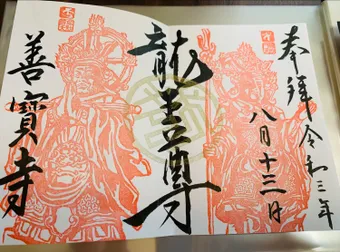 奉拝令和三年
八月十三日
龍王尊
善寳寺